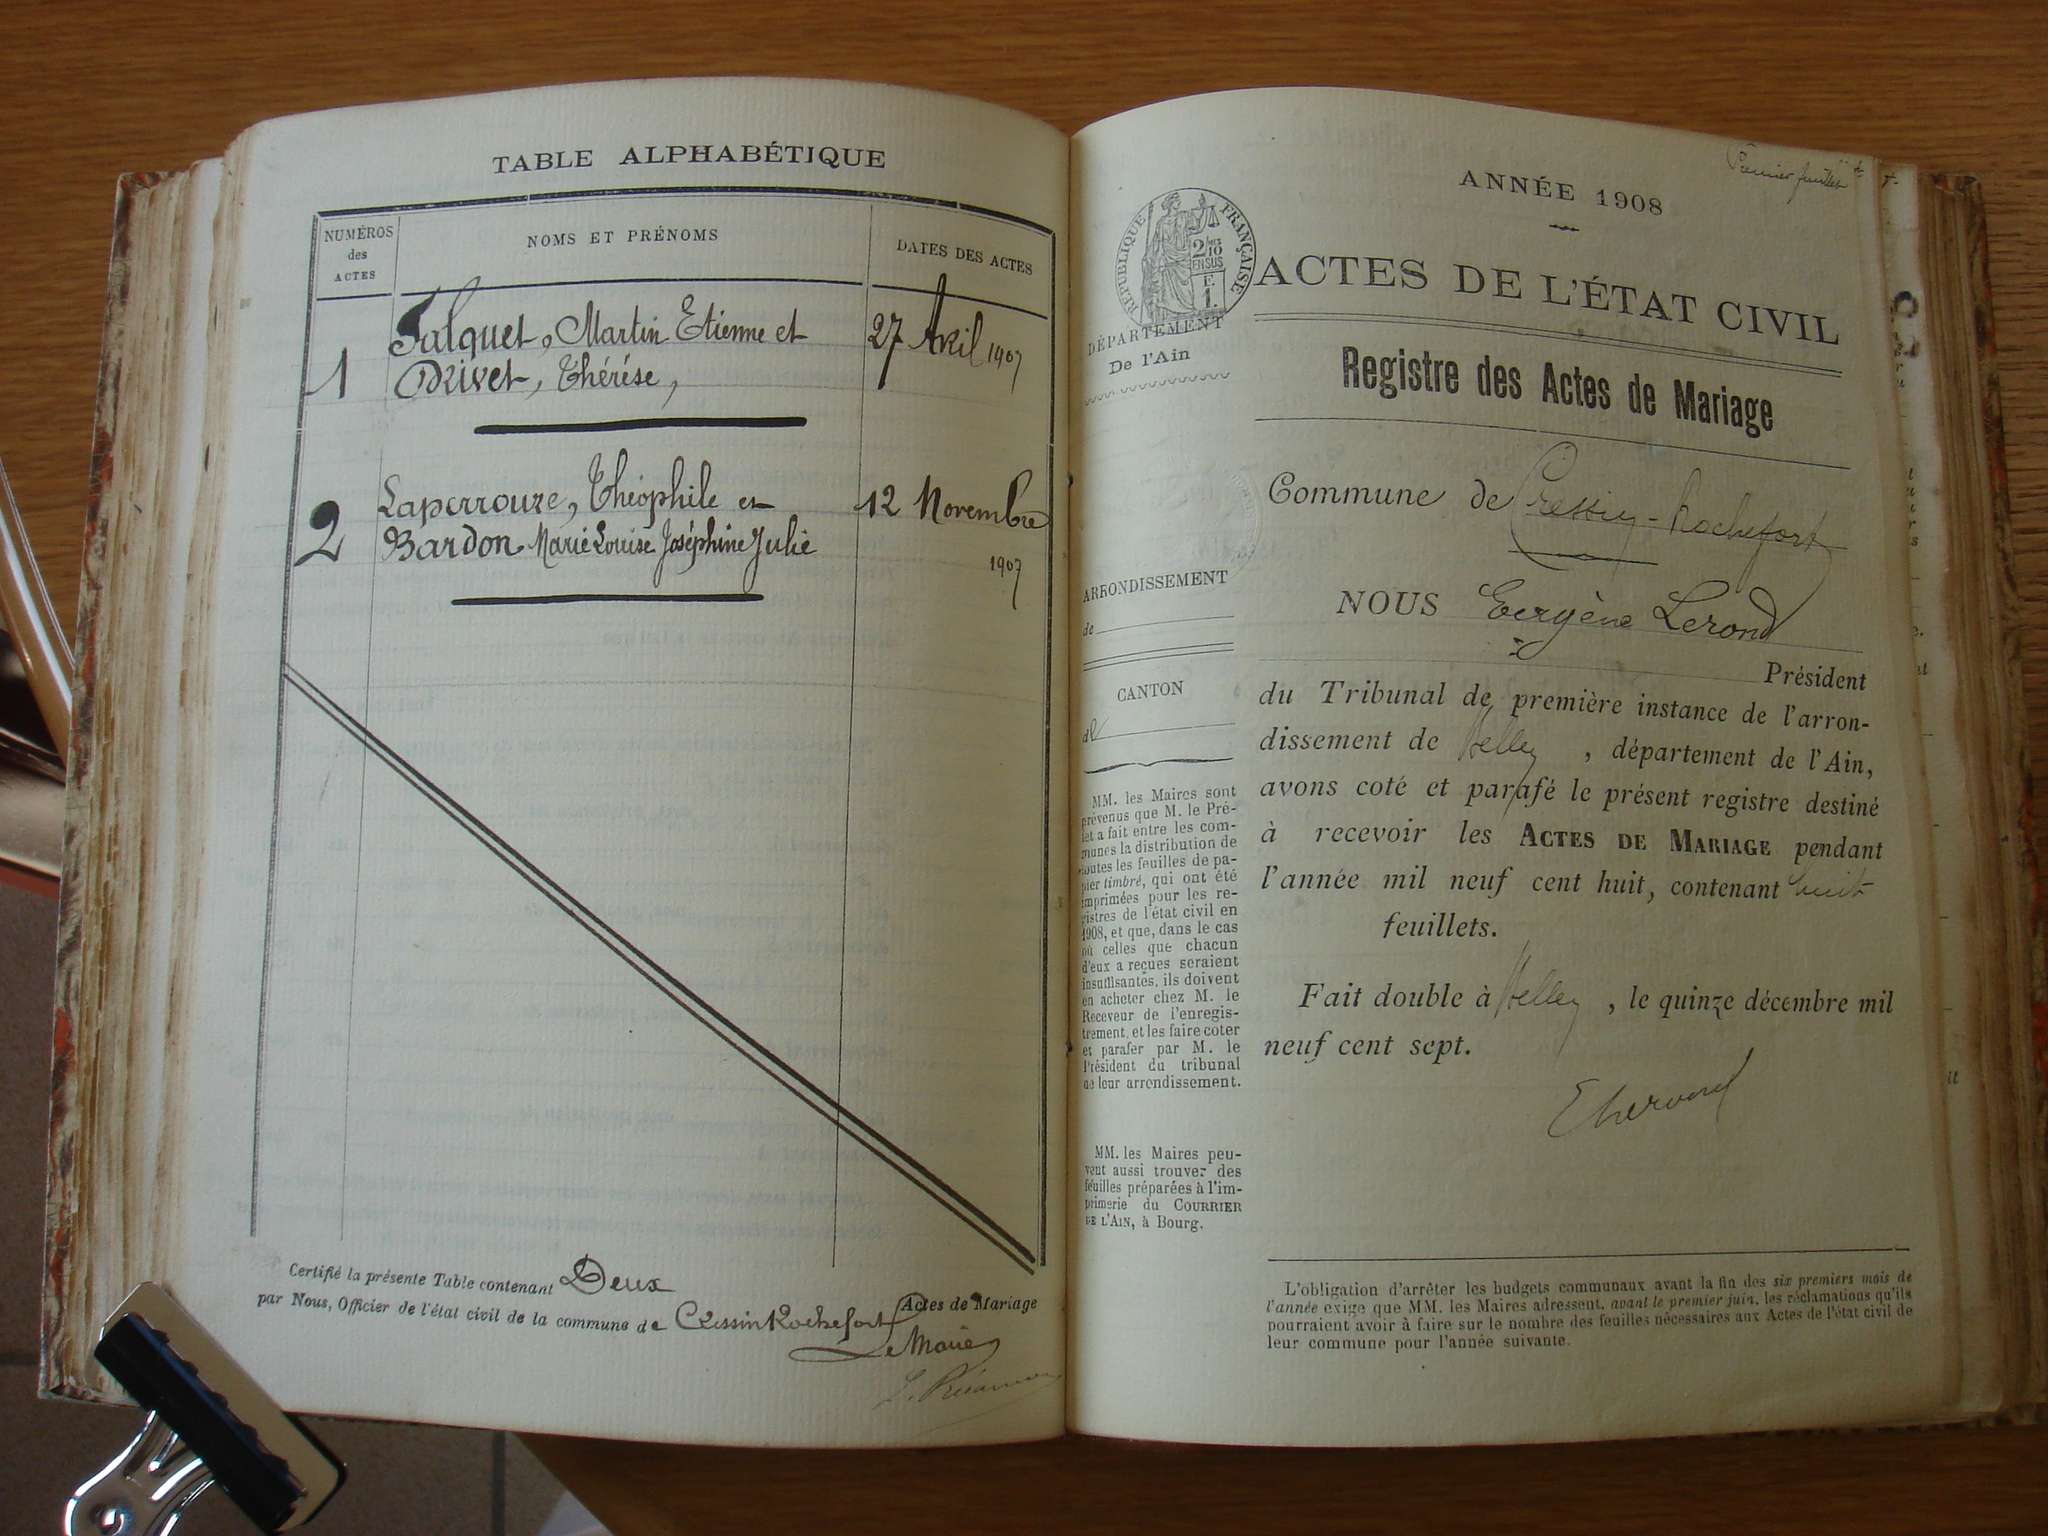 TABLE ALPHABÉTIQUE
NUMÉROS
des
ACTES
NOMS ET PRÉNOMS
DATES DES ACTES
1
Falquet, Martin Etienne et
Drivet, Thérése,
27 Avril 1907
2
Laperrouze, Théophile et
Bardon Marie Louise Joséphine Julie
12 Novembre
1907
Certifié la présente Table contenant Deux
Actes de Mariage
par Nous, Officier de l'état civil de la commune de Cressin Rochefort
Le Maire
Premier feuillet
ANNÉE 1908
RÉPUBLIQUE FRANÇAISE
2/10
EN SUS
F.
1.
DÉPARTEMENT
De l'Ain
ACTES DE L'ÉTAT CIVIL
Registre des Actes de Mariage
Commune de Cressin-Rochefort
ARRONDISSEMENT
de
CANTON
d
NOUS Eugène Lerond
Président
du Tribunal de première instance de l'arron-
dissement de Belley, département de l'Ain,
avons coté et parafé le présent registre destiné
à recevoir les ACTES DE MARIAGE pendant
l'année mil neuf cent huit, contenant huit
feuillets.
Fait double à Belley, le quinze décembre mil
neuf cent sept.
MM. les Maires sont
prévenus que M. le Pré-
fet a fait entre les com-
munes la distribution de
toutes les feuilles de pa-
pier timbré, qui ont été
imprimées pour les re-
gistres de l'état civil en
1908, et que, dans le cas
où celles que chacun
d'eux a reçues seraient
insuffisantes, ils doivent
en acheter chez M. le
Receveur de l'enregis-
trement, et les faire coter
et parafer par M. le
Président du tribunal
de leur arrondissement.
MM. les Maires peu-
vent aussi trouver des
feuilles préparées à l'im-
primerie du COURRIER
DE L'AIN, à Bourg.
L'obligation d'arrêter les budgets communaux avant la fin des six premiers mois de
l'année exige que MM. les Maires adressent, avant le premier juin, les réclamations qu'ils
pourraient avoir à faire sur le nombre des feuilles nécessaires aux Actes de l'état civil de
leur commune pour l'année suivante.